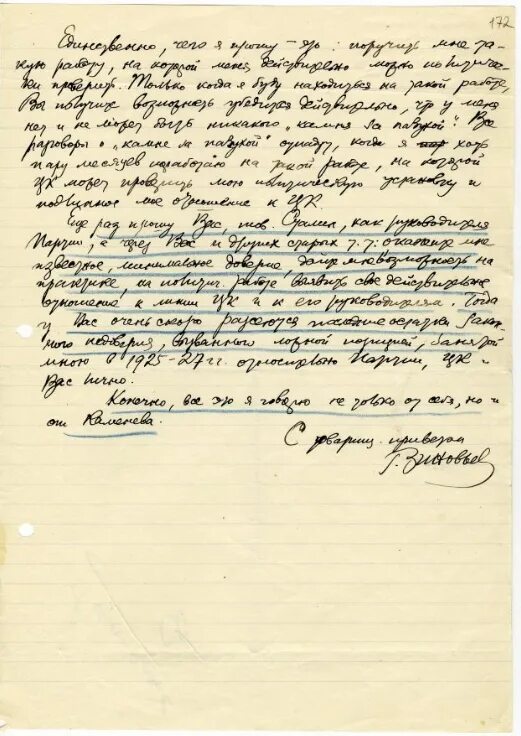 172
Единственно, чего я прошу – это: поручить мне та-
кую работу, на которой меня действительно можно политиче-
ски проверить. Только когда я буду находиться на такой работе,
Вы получите возможность убедиться действительно, что у меня
нет и не может быть никакого "камня за пазухой". Все
разговоры о "камне за пазухой" отпадут, когда я хоть
пару месяцев поработаю на такой работе, на которой
ЦК может проверить мою политическую установку и
подлинное мое отношение к ЦК.
Еще раз прошу Вас, тов. Сталин, как руководителя
партии, а через Вас и других старых т.т. оказать мне
известное, минимальное доверие, дать мне возможность на
практике, на политич. работе выявить свое действительное
отношение к линии ЦК и к его руководителям. Тогда
у Вас очень скоро рассеются последние остатки закон-
ного недоверия, вызванного ложной позицией, занятой
мною в 1925-27 гг. относительно партии, ЦК и
Вас лично.
Конечно, все это я говорю не только от себя, но и
от Каменева.
С товарищ. приветом
Г. Зиновьев